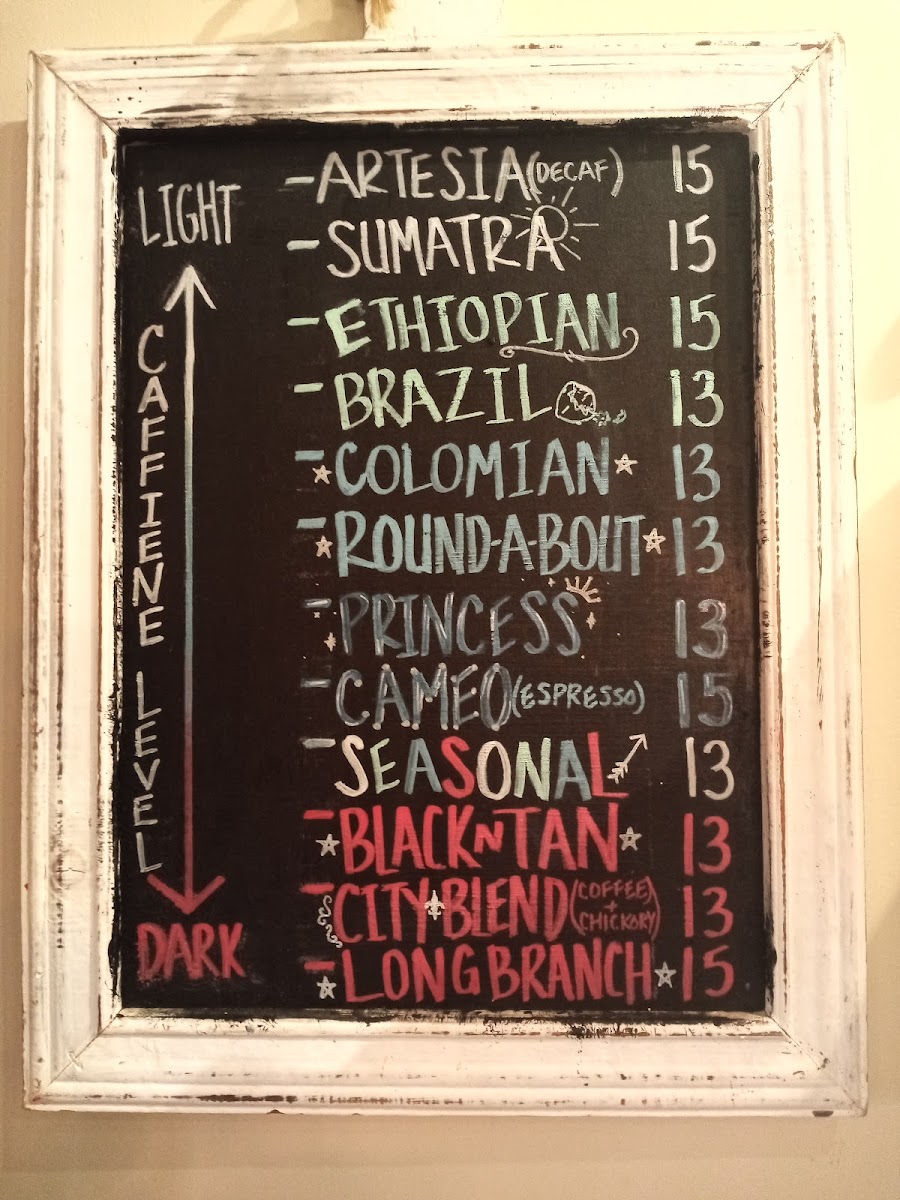 LIGHT
CAFFIENE LEVEL
DARK
-ARTESIA (DECAF) 15
-SUMATRA 15
-ETHIOPIAN 15
-BRAZIL 13
-COLOMIAN 13
-ROUND-A-BOUT 13
-PRINCESS 13
-CAMEO (ESPRESSO) 15
-SEASONAL 13
-BLACK N TAN 13
-CITY BLEND (COFFEE + CHICKORY) 13
-LONG BRANCH 15